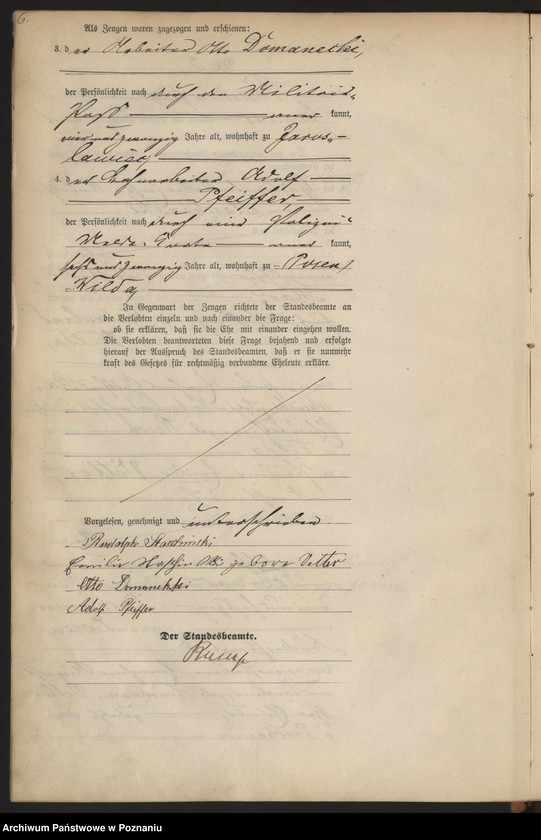 6.
Als Zeugen waren zugezogen und erschienen:
3. der Arbeiter Otto Domanecki,
der Persönlichkeit nach durch den Militair-
Paß kannt,
vier und zwanzig Jahre alt, wohnhaft zu Jaros-
lawiec,
4. der Bahnarbeiter Adolf
Pfeiffer,
der Persönlichkeit nach durch eine Polizei-
Melde-Karte kannt,
sechs und zwanzig Jahre alt, wohnhaft zu Posen,
Wilda,
In Gegenwart der Zeugen richtete der Standesbeamte an
die Verlobten einzeln und nach einander die Frage:
ob sie erklären, daß sie die Ehe mit einander eingehen wollen.
Die Verlobten beantworteten diese Frage bejahend und erfolgte
hierauf der Ausspruch des Standesbeamten, daß er sie nunmehr
kraft des Gesetzes für rechtmäßig verbundene Eheleute erkläre.
Vorgelesen, genehmigt und unterschrieben
Rudolph
Emilie gebore Vetter
Otto Domanetzki
Adolf Pfeiffer
Der Standesbeamte.
Archiwum Państwowe w Poznaniu